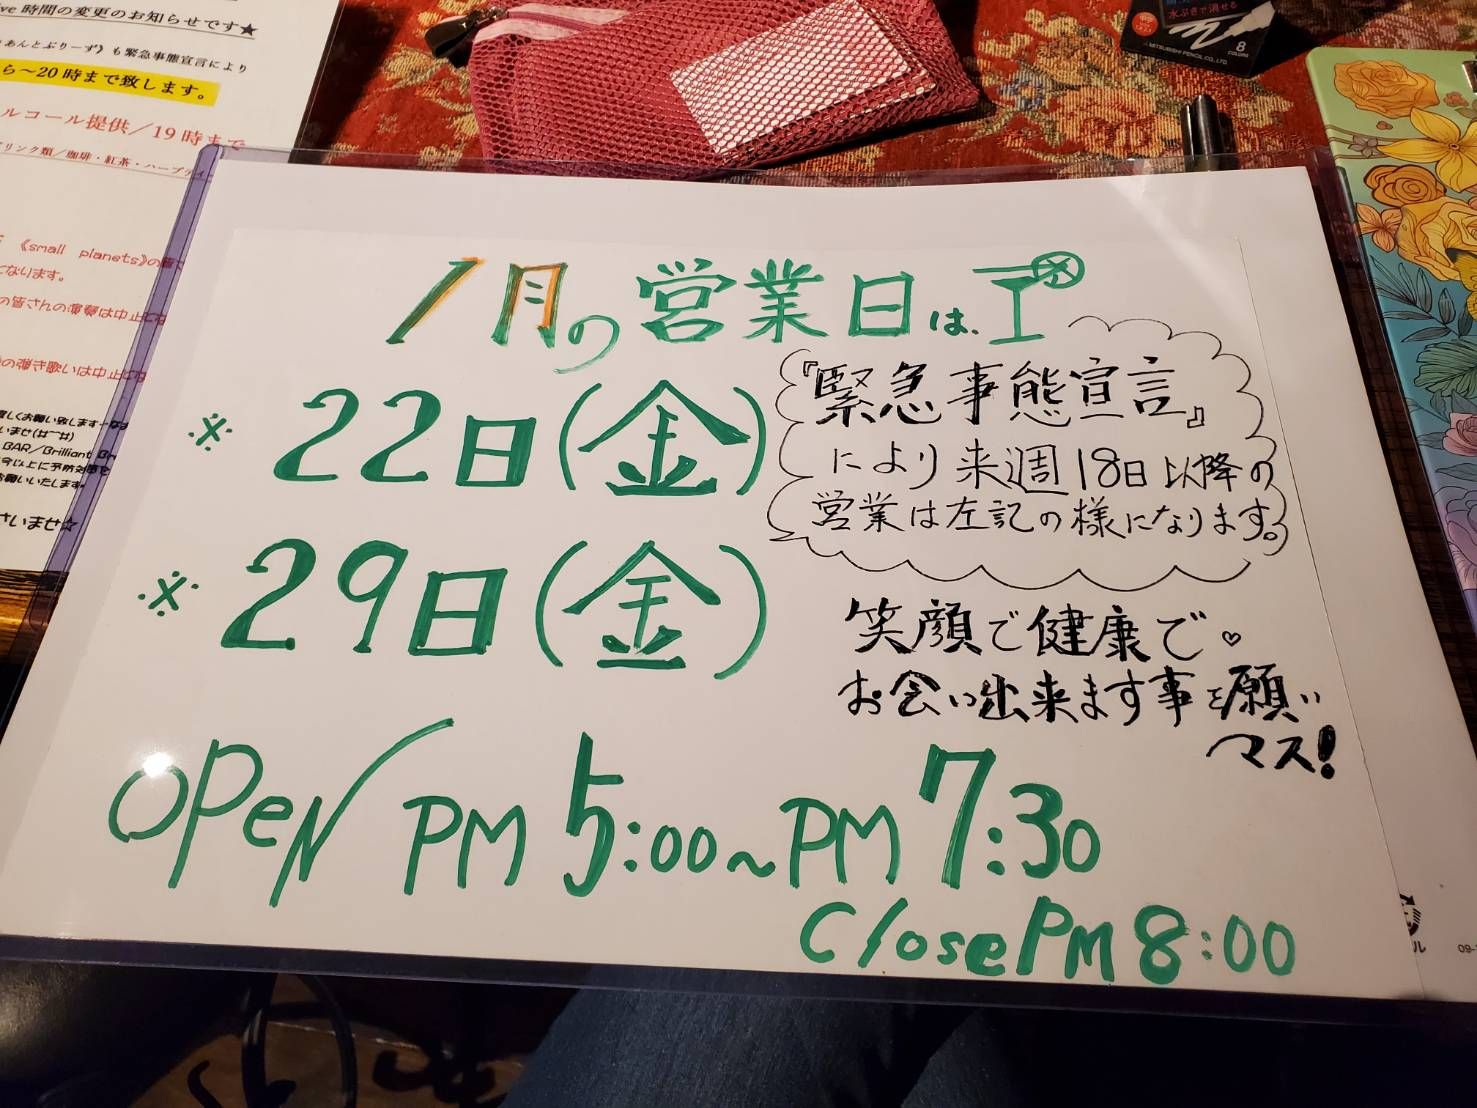 時間の変更のお知らせです★
も緊急事態宣言により
ら～20時まで致します。
ルコール提供／19時まで
リンク類／珈琲・紅茶・ハーブティ
《small planets》の
になります。
の皆さんの演奏は中止
の弾き歌いは中止
しくお願い致します
BAR／Brilliant
お願いいたします。
さいませ☆
水ふきで消せる
8
COLORS
MITSUBISHI PENCIL CO., LTD.
1月の営業日は、
※22日(金)
※29日(金)
『緊急事態宣言』
により来週18日以降の
営業は左記の様になります。
笑顔で健康で♡
お会い出来ます事を願い
マス!
OPEN PM 5:00~PM 7:30
Close PM 8:00